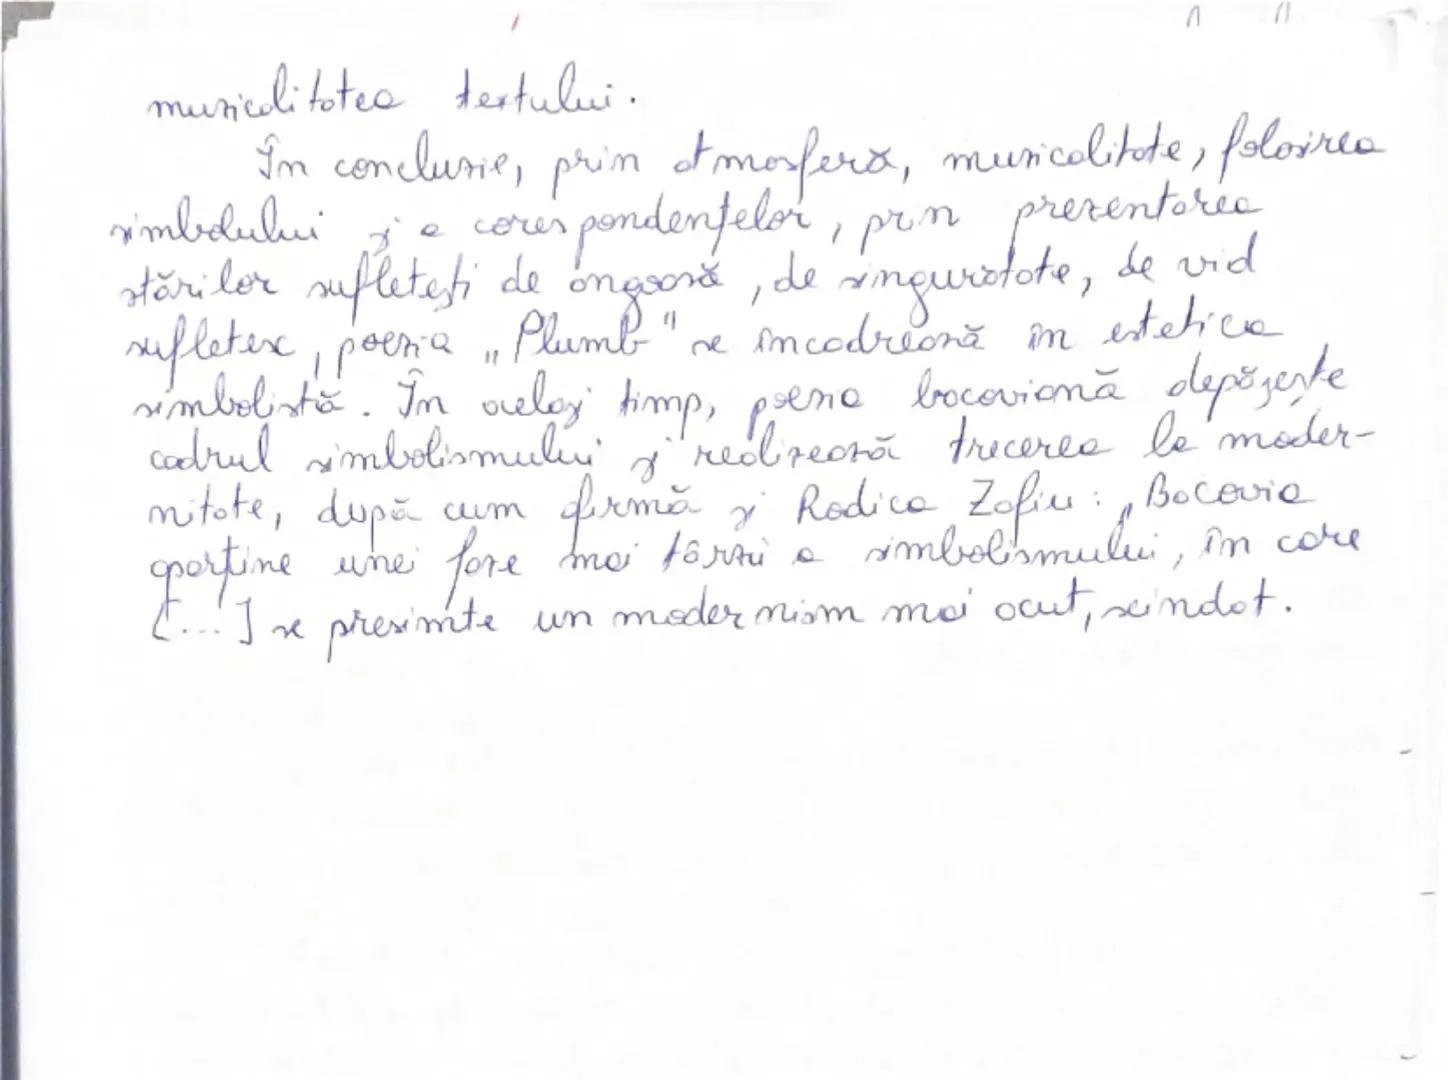 muzicalitatea textului.
În concluzie, prin atmosferă, muzicalitate, folosirea
simbolului și a corespondențelor, prin prezentarea
stărilor sufletești de angoasă, de singurătate, de vid
sufletesc, poezia „Plumb" se încadrează în estetica
simbolistă. În același timp, poezia bacoviană depășește
cadrul simbolismului și realizează trecerea la moder-
nitate, după cum afirmă și Rodica Zafiu: „Bacovia
aparține unei faze mai târzii a simbolismului, în care
[...] se presimte un modernism mai acut, scindat.